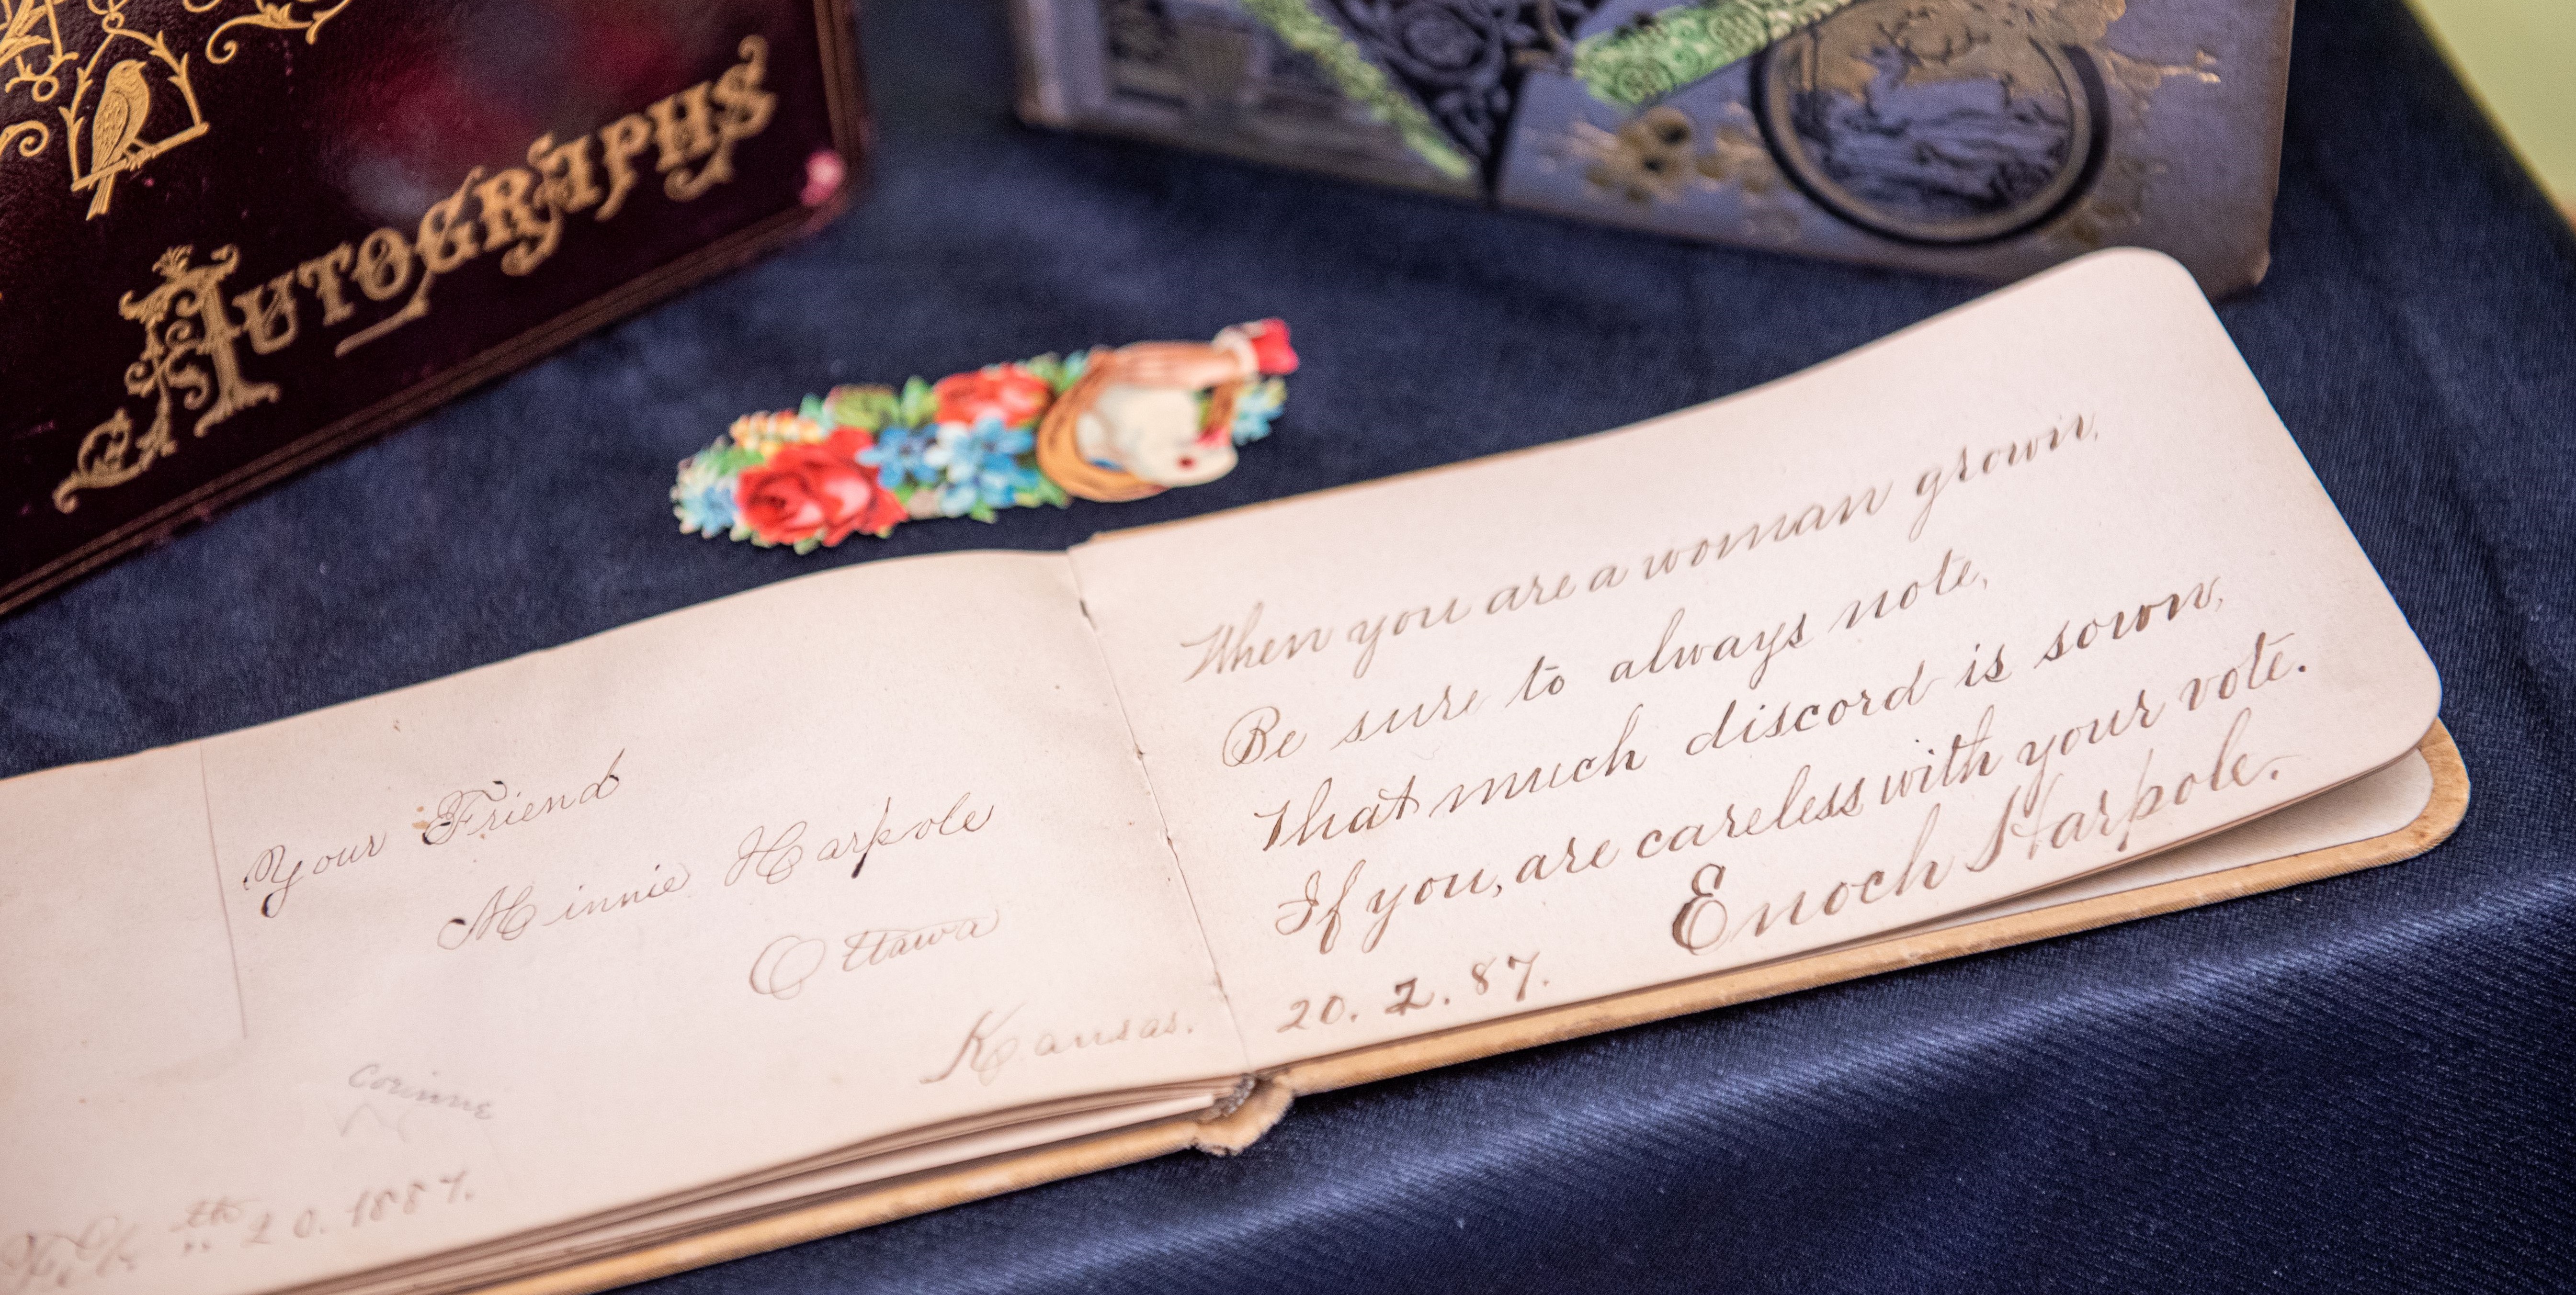 AUTOGRAPHS
Your Friend
Minnie Harpole
Ottawa
Kansas.
Corinne
th 20. 1887.
When you are a woman grown,
Be sure to always note,
That much discord is sown,
If you, are careless with your vote.
Enoch Harpole.
20. 2. 87.